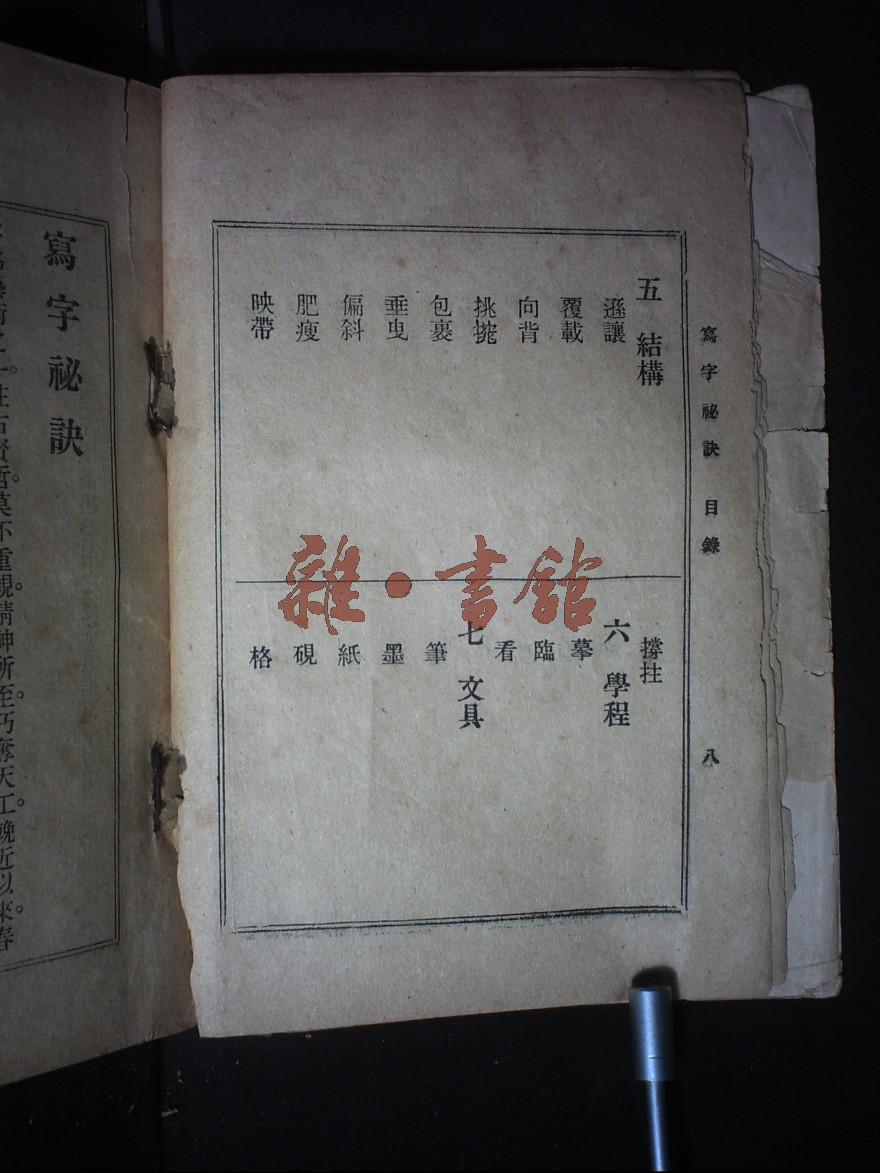 寫字祕訣 目錄
八
五 結構
遜讓
覆載
向背
挑㧜
包裹
垂曳
偏斜
肥瘦
映帶
撐拄
六 學程
摹
臨
看
七 文具
筆
墨
紙
硯
格
雜·書館
寫字祕訣
之一。往古賢哲。莫不重視。精神所至。巧奪天工。晚近以來。春